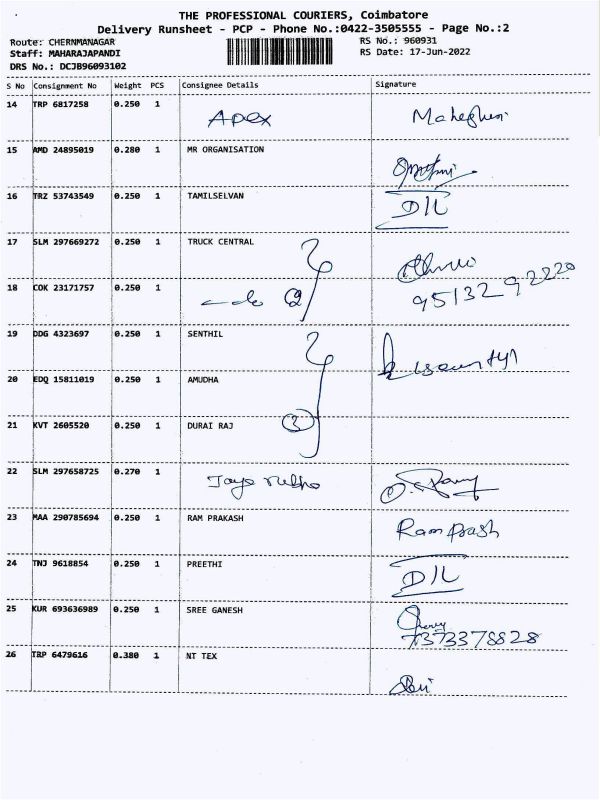 THE PROFESSIONAL COURIERS, Coimbatore
Delivery Runsheet - PCP - Phone No.:0422-3505555 - Page No.:2
Route: CHERNMANAGAR RS No.: 960931
Staff: MAHARAJAPANDI RS Date: 17-Jun-2022
DRS No.: DCJB96093102
S No Consignment No Weight PCS Consignee Details Signature
14 TRP 6817258 0.250 1 Apex
15 AMD 24895019 0.280 1 MR ORGANISATION
16 TRZ 53743549 0.250 1 TAMILSELVAN D/L
17 SLM 297669272 0.250 1 TRUCK CENTRAL
18 COK 23171757 0.250 1 do 2
19 DDG 4323697 0.250 1 SENTHIL
20 EDQ 15811019 0.250 1 AMUDHA
21 KVT 2605520 0.250 1 DURAI RAJ 3
22 SLM 297658725 0.270 1
23 MAA 290785694 0.250 1 RAM PRAKASH
24 TNJ 9618854 0.250 1 PREETHI D/L
25 KUR 693636989 0.250 1 SREE GANESH
7373378828
26 TRP 6479616 0.380 1 NT TEX